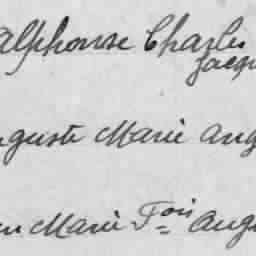 Alphonse Charles
Jacqu
uguste Marie Aug
en Marie Fois Augu